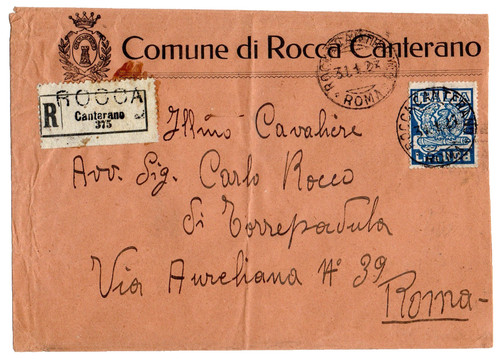 Comune di Rocca Canterano
ROCCA
R
Canterano
375
ROMA
Illmo Cavaliere
Avv. Sig. Carlo Rocco
di Torrepadula
Via Aureliana N° 39
Roma